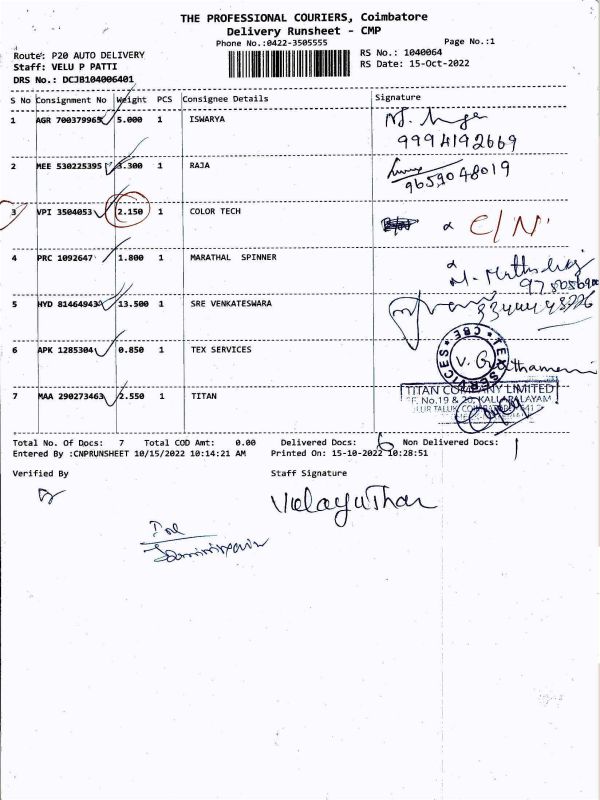 THE PROFESSIONAL COURIERS, Coimbatore
Delivery Runsheet - CMP
Phone No.:0422-3505555 Page No.:1
Route: P20 AUTO DELIVERY RS No.: 1040064
Staff: VELU P PATTI RS Date: 15-Oct-2022
DRS No.: DCJB104006401
S No Consignment No Weight PCS Consignee Details Signature
1 AGR 700379965 5.000 1 ISWARYA
9994192669
2 MEE 530225395 3.300 1 RAJA
9659048019
3 VPI 3504053 2.150 1 COLOR TECH C/N
4 PRC 1092647 1.800 1 MARATHAL SPINNER
5 HYD 814649434 13.500 1 SRE VENKATESWARA
6 APK 1285304 0.850 1 TEX SERVICES
TEX SERVICES CBE
7 MAA 290273463 2.550 1 TITAN
TITAN COMPANY LIMITED
No.19 & 20, KALLAPALAYAM
Total No. Of Docs: 7 Total COD Amt: 0.00 Delivered Docs: 6 Non Delivered Docs: 1
Entered By :CNPRUNSHEET 10/15/2022 10:14:21 AM Printed On: 15-10-2022 10:28:51
Verified By Staff Signature
Velayuthan